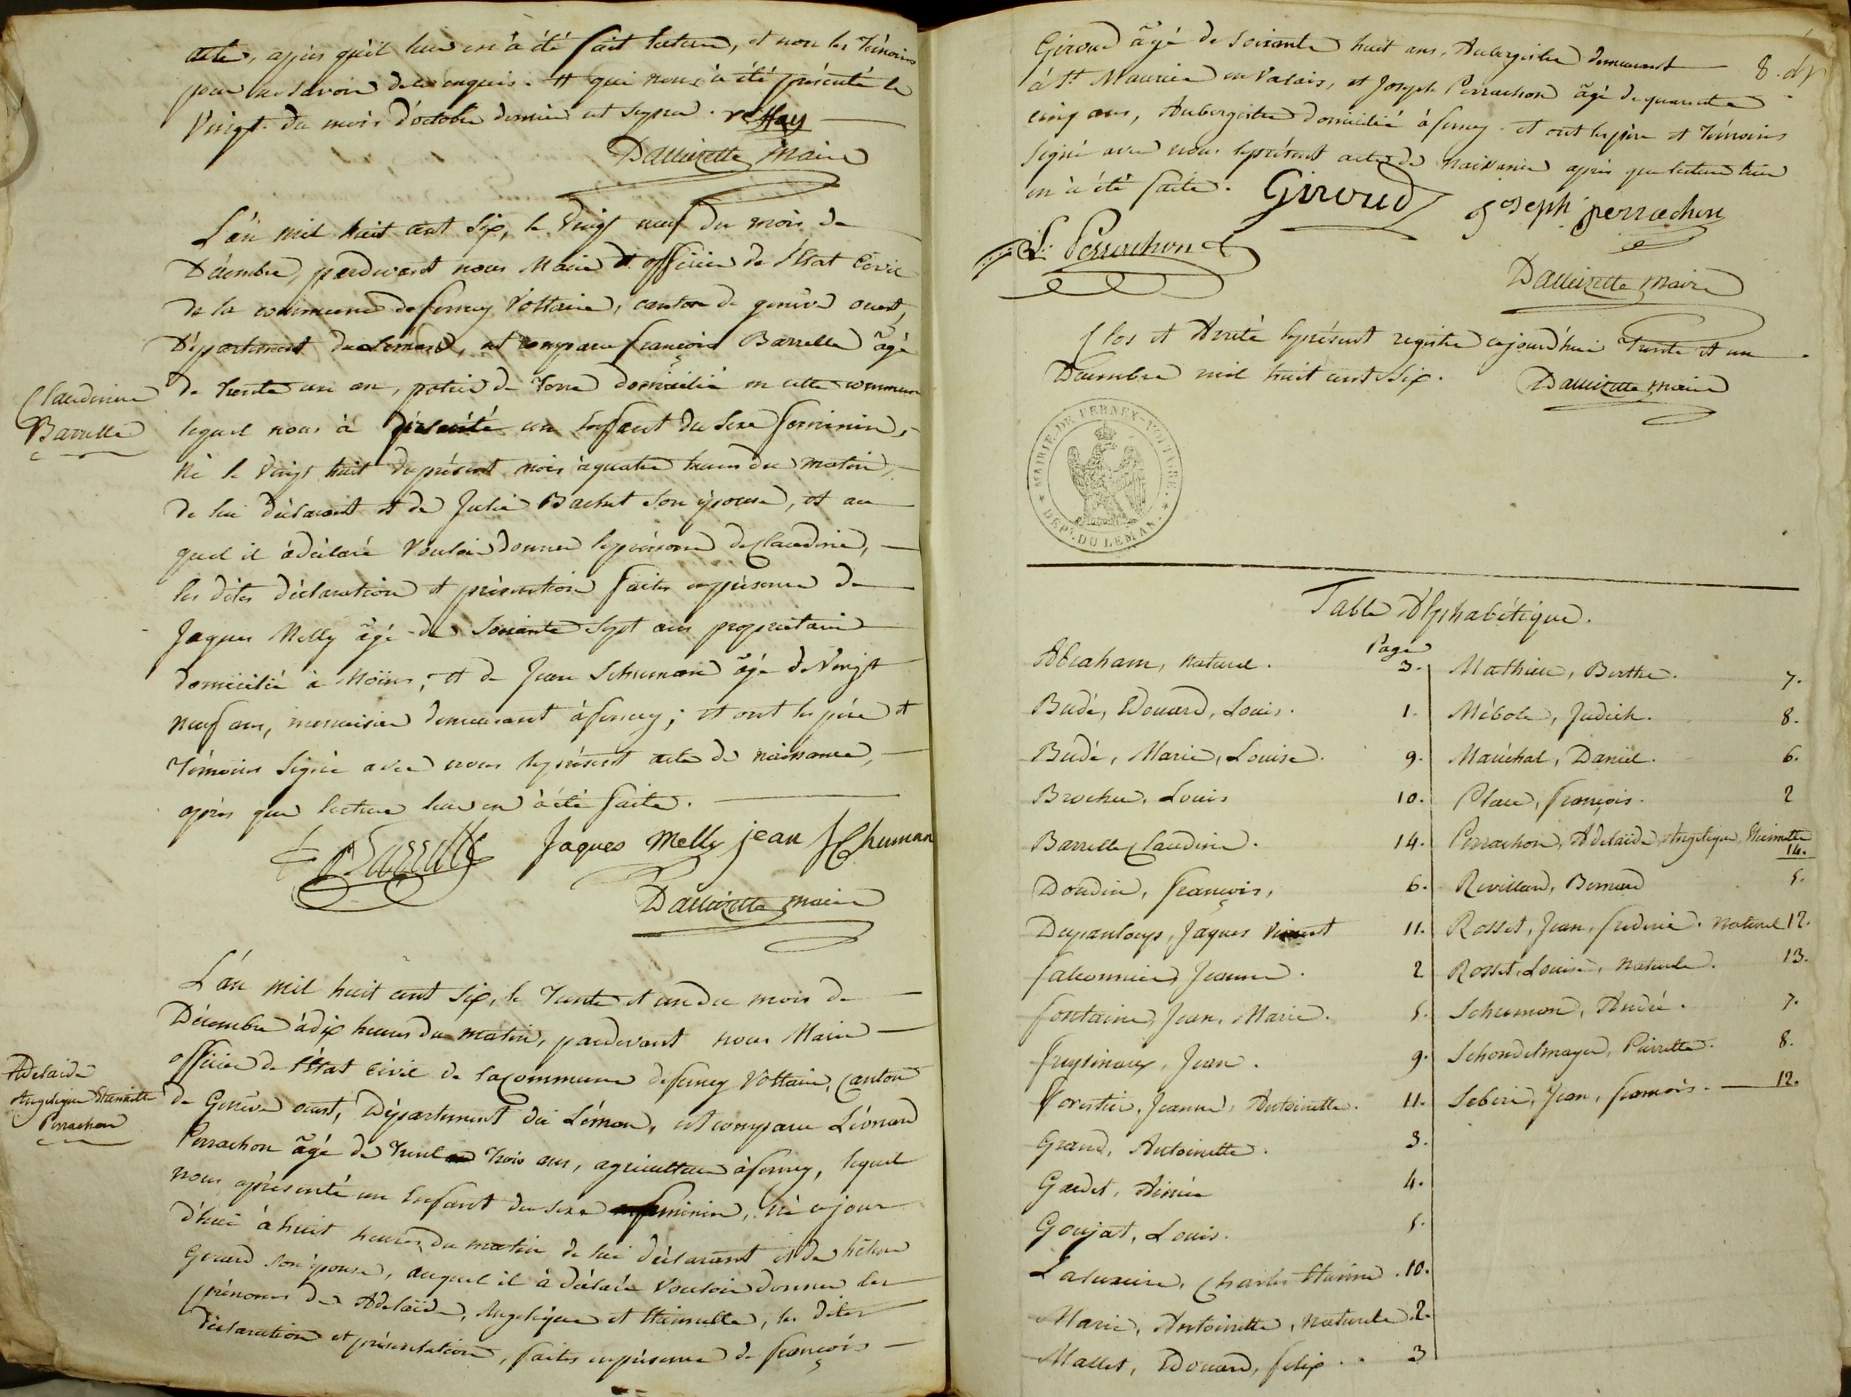 acte, après qu'il leur en à été fait lecture, et non les Témoins
pour ne savoir de ce enquis. # qui nous à été présenté le
Vingt du mois d'octobre dernier est signé.
Dallizette Maire
L'an mil huit cent Six, le Vingt neuf du mois de
Décembre, pardevant nous Maire et officier de l'Etat Civil
de la commune de ferney Voltaire, canton de genève ouest,
Département du Léman, est comparu françois Barrelle âgé
de trente un an, potier de Terre domicilié en cette commune
Claudinne
Barrelle
lequel nous à présenté un Enfant du Sexe feminin,
Né le Vingt huit du présent mois à quatre heures du matin,
de lui déclarant et de Julie Bachet son épouse, et au
quel il à déclaré Vouloir donner le prénom de Claudine,
les dites déclaration et présentation faites en présence de
Jaques Melly âgé de Soixante Sept ans propriétaire
domicilié à Moëns, et de Jean Schumann âgé de Vingt
neuf ans, menuisier demeurant à ferney; et ont les père et
Témoins Signé avec nous le présent acte de naissance,
après que lecture leur en à été faite.
f Barrelle Jaques Melly jean Schuman
Dallizette Maire
L'an mil huit cent Six, le Trente et un du mois de
Décembre à dix heures du matin, pardevant nous Maire
officier de l'Etat Civil de la Commune de ferney Voltaire, Canton
Adelaïde
Angelique Etiennette
Perrachon
de Genève ouest, Département du Léman, est comparu Léonard
Perrachon âgé de Trente Trois ans, agriculteur à ferney, lequel
nous à présenté un Enfant du Sexe feminin, Né ce jour
d'hui à huit heures du matin de lui déclarant et de
Giroud son épouse, auquel il à déclaré Vouloir donner les
prénoms de Adelaïde, Angelique et Etiennette, les dites
déclaration et présentation, faites en présence de françois
Giroud âgé de Soixante huit ans, Aubergiste demeurant
à St. Maurice en Valais, et Joseph Perrachon âgé de quarante
cinq ans, Aubergiste domicilié à ferney. et ont les père et Témoins
Signé avec nous le présent acte de Naissance après que lecture leur
en à été faite. Giroud Joseph perrachon
L. Perrachon
Dallizette Maire
Clos et Arrêté le présent registre aujourd'hui Trente et un
Décembre mil huit cent Six. Dallizette Maire
MAIRIE DE FERNEY-VOLTAIRE.
DEPt. DU LEMAN.
Table Alphabétique.
Page
Abraham, naturel. 3.
Budé, Edouard, Louis. 1.
Budé, Marie, Louise. 9.
Brochu, Louis 10.
Barrelle Claudine. 14.
Doudin, François, 6.
Dupanloup, Jaques Vincent 11.
falconnier, Jeanne. 2
fontaine, Jean, Marie. 5.
freysinaux, Jean. 9.
Forestier, Jeanne, Antoinette. 11.
Grand, Antoinette. 3.
Gardet, Aimée 4.
Goujat, Louis. 5.
Charles Etienne. 10.
Marie, Antoinette, Naturelle 2.
Mallet, Edouard, felix. 3
Mathieu, Berthe. 7.
Mébole, Judith. 8.
Maréchal, Daniel. 6.
Place, françois. 2
Perrachon, Adelaïde, Angelique, Etiennette
14.
Revillard, Bernard 5.
Rosset, Jean, frederic. naturel 12.
Rosset, Louise, naturele. 13.
Schuman, André. 7.
Schondelmayer, Pierrette. 8.
Jean, françois. 12.